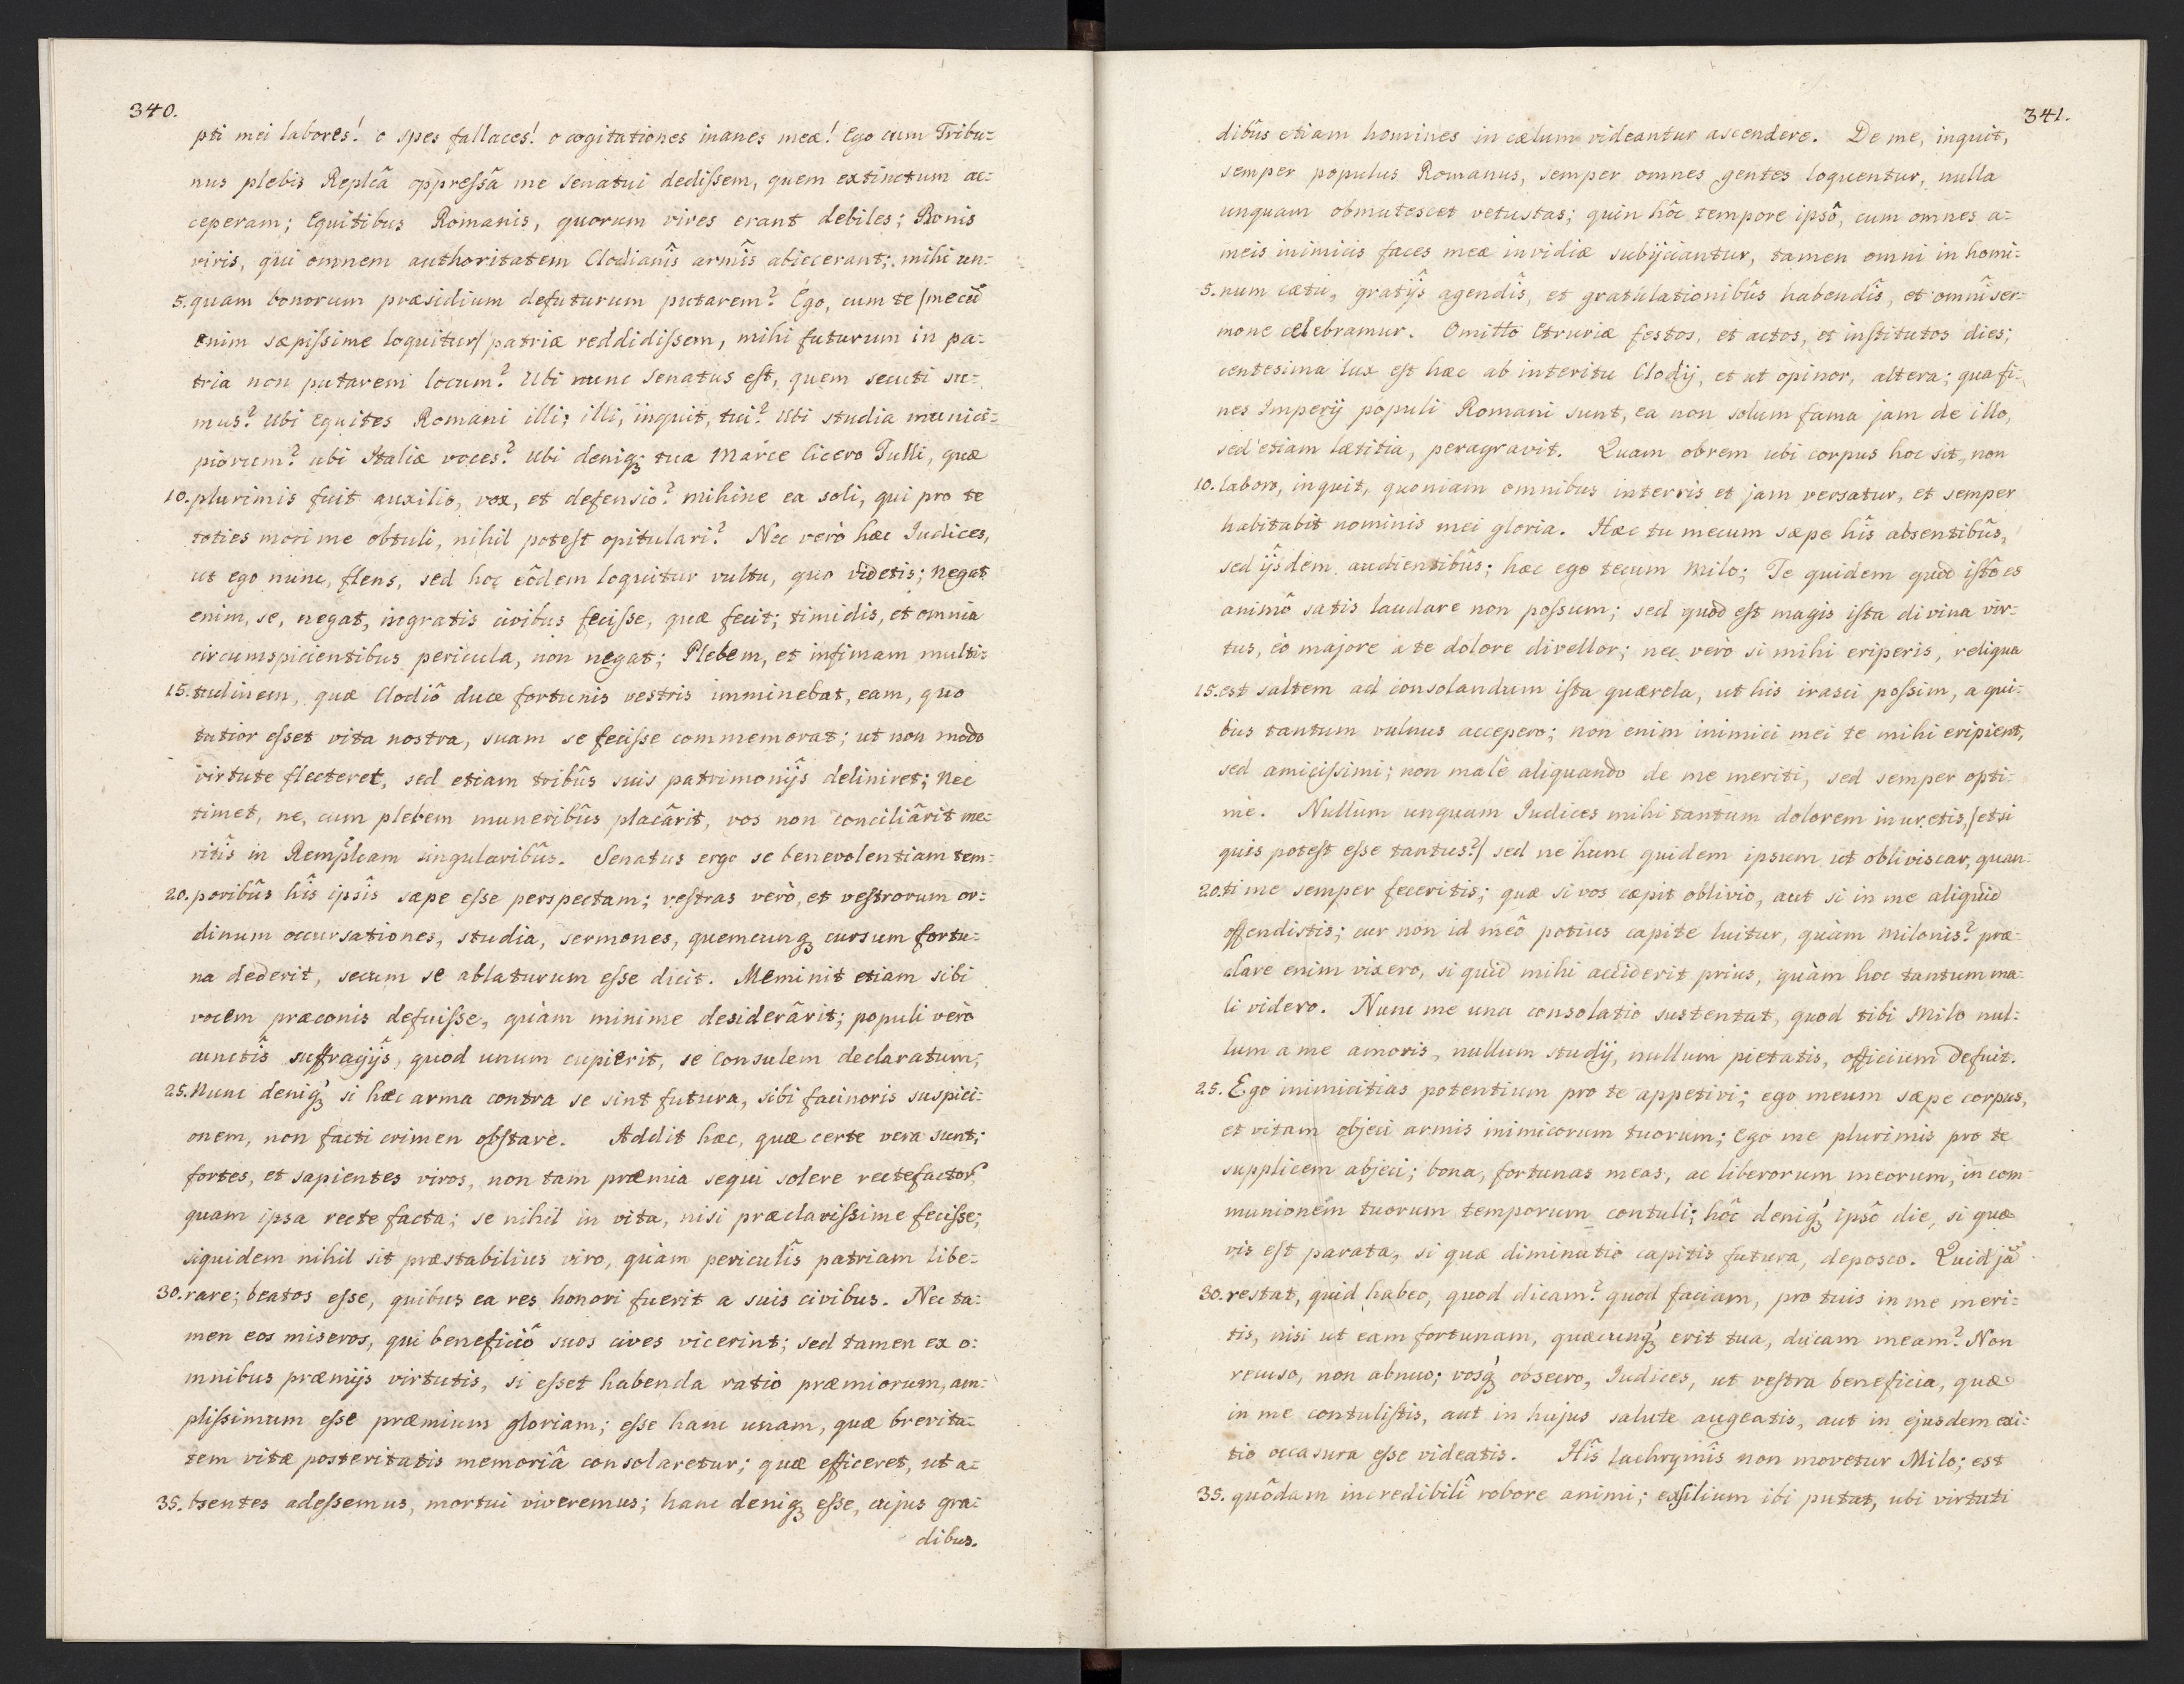 340.
pti mei labores! o spes fallaces! o cogitationes inanes meæ! Ego cum Tribu=
nus plebis Replcâ oppreſsâ me Senatui dediſsem, quem extinctum ac=
ceperam; Equitibus Romanis, quorum vires erant debiles; Bonis
viris, qui omnem authoritatem Clodianîs armîs abiecerant; mihi un=
5. quam bonorum præsidium defuturum putarem? Ego, cum te /mecū
enim sæpiſsime loquitur/ patriæ reddidiſsem, mihi futurum in pa=
tria non putarem locum? Ubi nunc Senatus eſt, quem secuti su=
mus? Ubi Equites Romani illi; illi, inquit, tui? Ubi studia munici=
piorum? ubi Italiæ voces? Ubi deniq; tua Marce Cicero Tulli, quæ
10. plurimis fuit auxilio, vox, et defensio? mihine ea soli, qui pro te
toties mori me obtuli, nihil poteſt opitulari? Nec verò hæc Judices,
ut ego nunc, flens, sed hoc eôdem loquitur vultu, quo videtis; Negat
enim, se, negat, ingratis civibus feciſse, quæ fecit; timidis, et omnia
circumspicientibus pericula, non negat; Plebem, et infimam multi=
15. tudinem, quæ Clodiô duce fortunis vestris imminebat, eam, quo
tutior eſset vita nostra, suam se feciſse commemorat; ut non modo
virtute flecteret, sed etiam tribûs suis patrimonijs deliniret; Nec
timet, ne, cum plebem muneribûs placârit, vos non conciliârit me=
ritîs in Rempłcam singularibûs. Senatus ergo se benevolentiam tem=
20. poribûs hîs ipsîs sæpe eſse perspectam; veſtras verò, et veſtrorum or=
dinum occursationes, studia, sermones, quemcunq; cursum fortu=
na dederit, secum se ablaturum eſse dicit. Meminit etiam sibi
vocem præconis defuiſse, quàm minime desiderârit; populi verò
cunctîs suffragijs, quod unum cupierit, se Consulem declaratum;
25. Nunc deniq; si hæc arma contra se sint futura, sibi facinoris suspici=
onem, non facti crimen obſtare. Addit hæc, quæ certe vera sunt;
fortes, et sapientes viros, non tam præmia sequi solere rectefactor̃
quam ipsa recte facta; se nihil in vita, nisi præclariſsime feciſse;
siquidem nihil sit præstabilius viro, quàm periculîs patriam libe=
30. rare; beatos eſse, quibus ea res honori fuerit a suis civibus. Nec ta=
men eos miseros, qui beneficiô suos cives vicerint; sed tamen ex o=
mnibus præmijs virtutis, si eſset habenda ratio præmiorum, am=
pliſsimum eſse præmium gloriam; eſse hanc unam, quæ brevita=
tem vitæ posteritatis memoriâ consolaretur; quæ efficeret, ut a=
35. bsentes adeſsemus, mortui viveremus; hanc deniq; eſse, cujus gra=
dibus.
341.
dibûs etiam homines in cælum videantur ascendere. De me, inquit,
semper populus Romanus, semper omnes gentes loquentur, nulla
unquam obmutescet vetustas; quin hôc tempore ipsô, cum omnes a=
meis inimicis faces meæ invidiæ subijciantur, tamen omni in homi=
5. num cætu, gratijs agendîs, et gratulationibûs habendîs, et omni ser=
mone celebramur. Omitto Etruriæ festos, et actos, et inſtitutos dies;
centesima lux eſt hæc ab interitu Clodij, et ut opinor, altera; qua fi=
nes Imperij populi Romani sunt, ea non solum fama jam de illo,
sed etiam lætitia, peragravit. Quam obrem ubi corpus hoc sit, non
10. laboro, inquit, quoniam omnibus in terris et jam versatur, et semper
habitabit nominis mei gloria. Hæc tu mecum sæpe hîs absentibûs,
sed ijsdem audientibûs; hæc ego tecum Milo; Te quidem quòd iſtô es
animô satis laudare non poſsum; sed quòd eſt magis iſta divina vir=
tus, eò majore a te dolore divellor; nec verò si mihi eriperis, reliqua
15. est saltem ad consolandum iſta quærela, ut his irasci poſsim, a qui=
bus tantum vulnus accepero; non enim inimici mei te mihi eripient,
sed amiciſsimi; non malè aliquando de me meriti, sed semper opti=
mè. Nullum unquam Judices mihi tantum dolorem inuretis, /etsi
quis poteſt eſse tantus?/ sed ne hunc quidem ipsum ut obliviscar, quan=
20. ti me semper feceritis; quæ si vos cæpit oblivio, aut si in me aliquid
offendistis; cur non id meô potius capite luitur, quàm Milonis? præ=
clare enim vixero, si quid mihi acciderit prius, quàm hoc tantum ma=
li videro. Nunc me una consolatio sustentat, quod tibi Milo nul=
lum a me amoris, nullum studij, nullum pietatis, officium defuit.
25. Ego inimicitias potentium pro te appetivi; ego meum sæpe corpus,
et vitam objeci armis inimicorum tuorum; Ego me plurimis pro te
supplicem abjeci; bona, fortunas meas, ac liberorum meorum, in com=
munionêm tuorum temporum contuli; hôc deniq; ipsô die, si quæ
vis eſt parata, si quæ diminutio capitis futura, deposco. Quid jā
30. restat, quid habeo, quod dicam? quod faciam, pro tuis in me meri=
tis, nisi ut eam fortunam, quæcunq; erit tua, ducam meam? Non
recuso, non abnuo; vosq; obsecro, Judices, ut veſtra beneficia, quæ
in me contuliſtis, aut in hujus salute augeatis, aut in ejusdem exi=
tio occasura eſse videatis. Hîs lachrymîs non movetur Milo; est
35. quôdam incredibilî robore animi; exſilium ibi putat, ubi virtuti